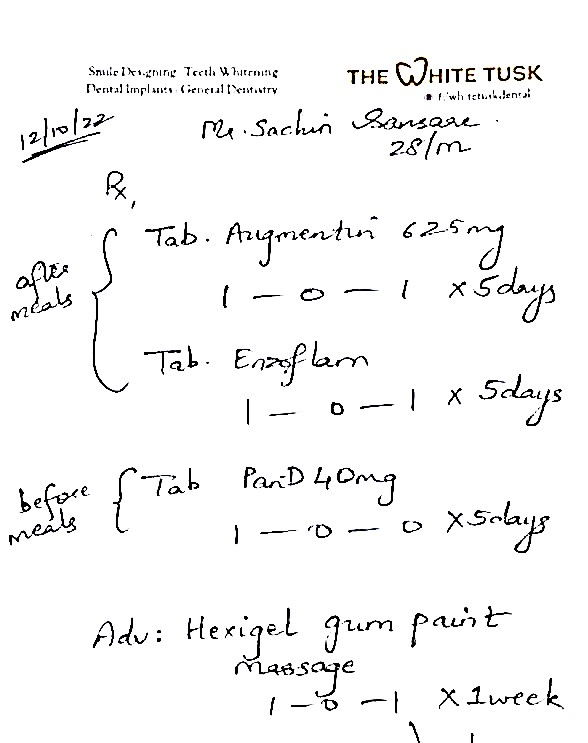 Smile Designing Teeth Whitening
Dental Implants General Dentistry
THE WHITE TUSK
f/whitetuskdental
12/10/22
Mr. Sachin Sansare.
28/m
Rx,
after meals
Tab. Augmentin 625mg
1 — 0 — 1 x 5days
Tab. Enzoflam
1 — 0 — 1 x 5days
before meals
Tab PanD 40mg
1 — 0 — 0 x 5days
Adv: Hexigel gum paint
massage
1 - 0 - 1 x 1week